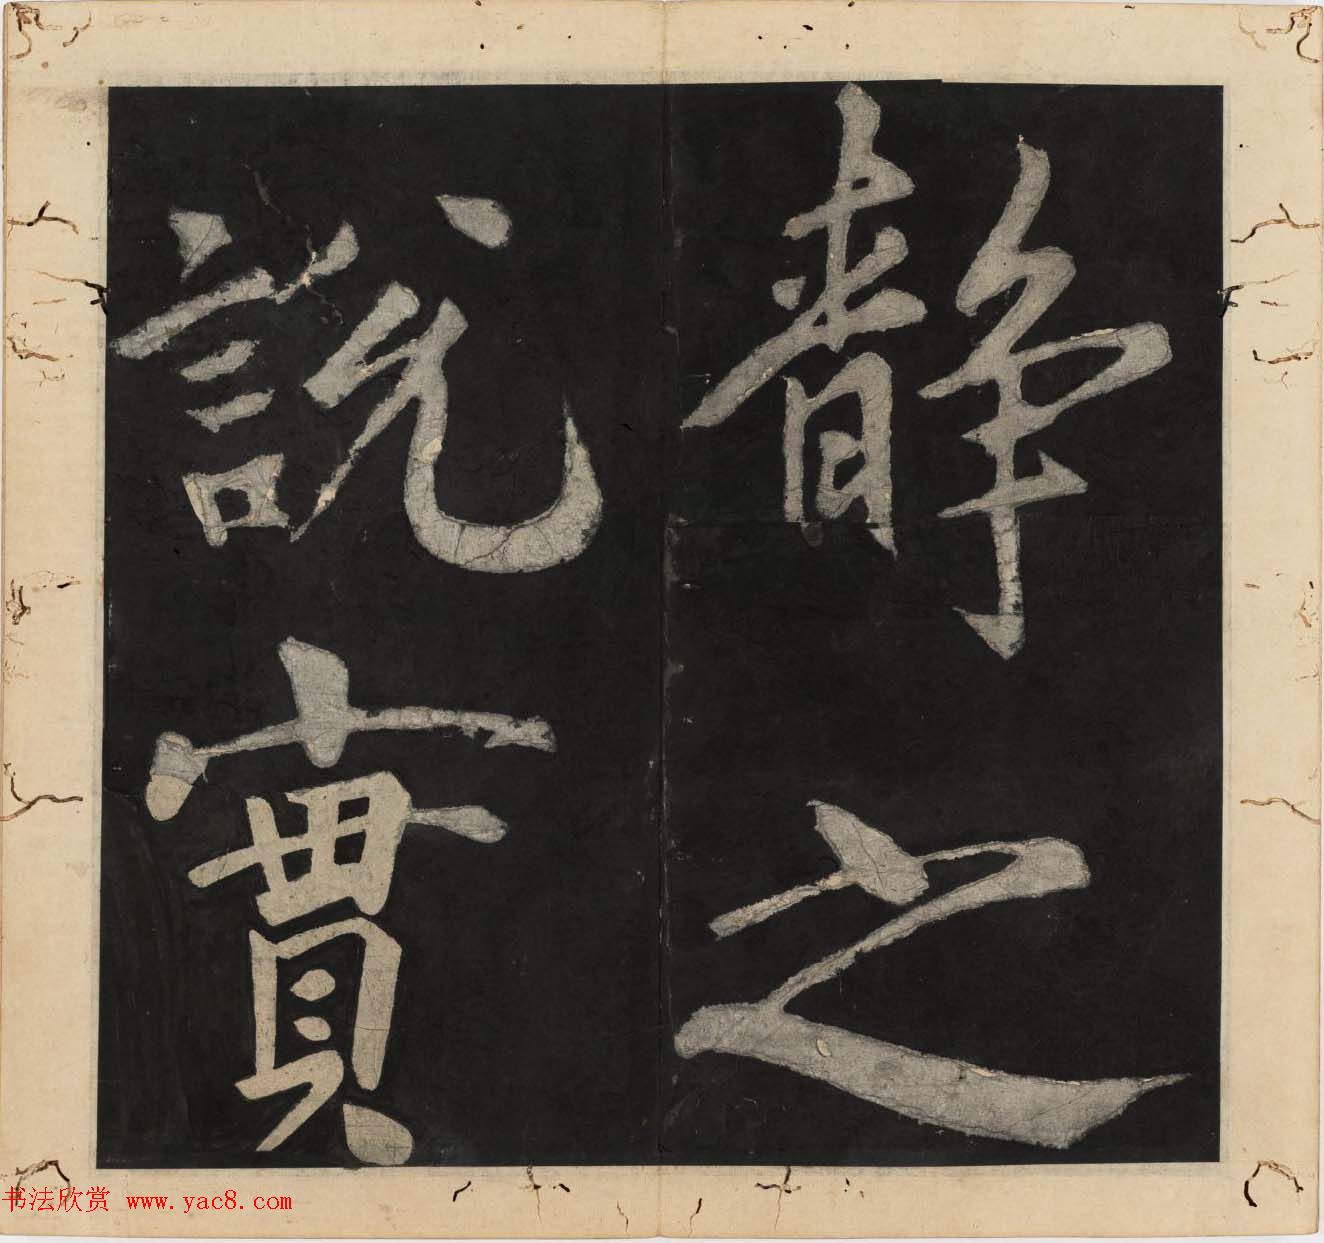 靜之
說實
书法欣赏 www.yac8.com